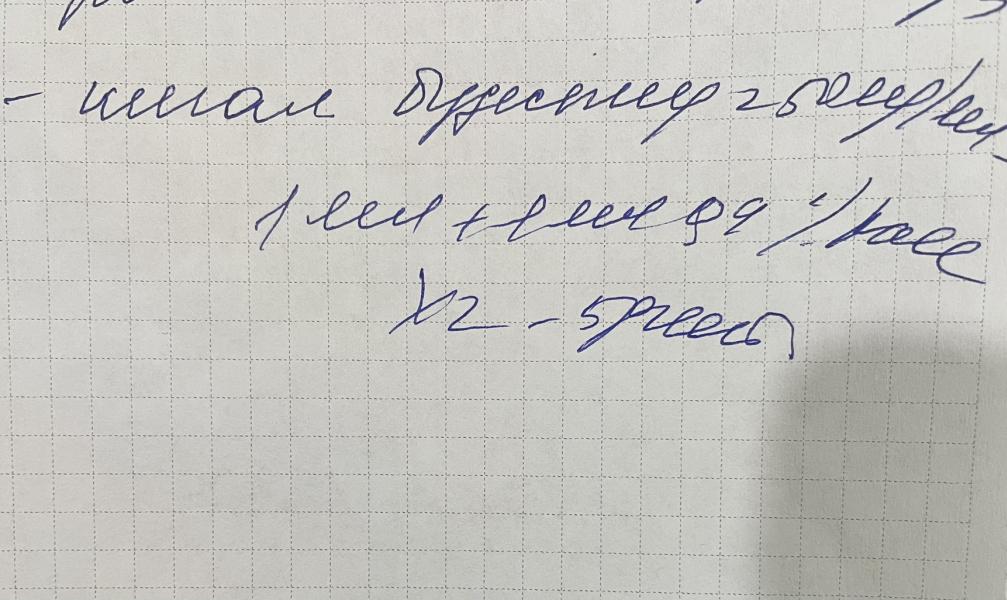 - ингал Будесонид 250 мкг/мл
1 мл + 1 мл 0,9 % NaCl
X2 - 5 дней